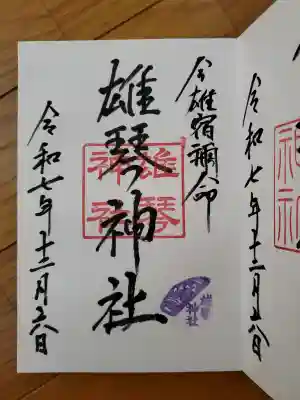 今雄宿禰命
雄琴神社
雄琴
神社
令和七年十二月二八日
令和七年十二月二八日